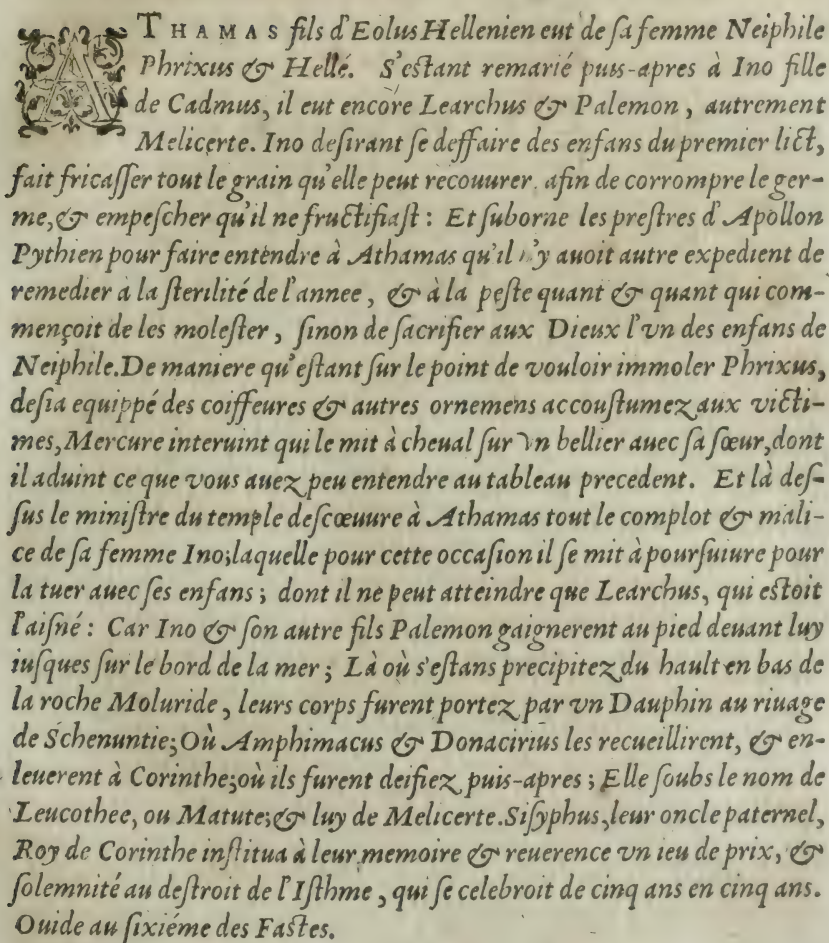 ATHAMAS fils d'Eolus Hellenien eut de sa femme Neiphile
Phrixus & Hellé. S'estant remarié puis-apres à Ino fille
de Cadmus, il eut encore Learchus & Palemon, autrement
Melicerte. Ino desirant se deffaire des enfans du premier lict,
fait fricasser tout le grain qu'elle peut recouurer afin de corrompre le ger-
me, & empescher qu'il ne fructifiast : Et suborne les prestres d'Apollon
Pythien pour faire entendre à Athamas qu'il n'y auoit autre expedient de
remedier à la sterilité de l'annee, & à la peste quant & quant qui com-
mençoit de les molester, sinon de sacrifier aux Dieux l'vn des enfans de
Neiphile. De maniere qu'estant sur le point de vouloir immoler Phrixus,
desia equippé des coiffeures & autres ornemens accoustumez aux victi-
mes, Mercure interuint qui le mit à cheual sur vn bellier auec sa sœur, dont
il aduint ce que vous auez peu entendre au tableau precedent. Et là des-
sus le ministre du temple descœuure à Athamas tout le complot & mali-
ce de sa femme Ino; laquelle pour cette occasion il se mit à poursuiure pour
la tuer auec ses enfans ; dont il ne peut atteindre que Learchus, qui estoit
l'aisné : Car Ino & son autre fils Palemon gaignerent au pied deuant luy
iusques sur le bord de la mer ; Là où s'estans precipitez du hault en bas de
la roche Moluride, leurs corps furent portez par vn Dauphin au riuage
de Schenuntie; Où Amphimacus & Donacirius les recueillirent, & en-
leuerent à Corinthe; où ils furent deifiez puis-apres ; Elle soubs le nom de
Leucothee, ou Matute; & luy de Melicerte. Sisyphus, leur oncle paternel,
Roy de Corinthe institua à leur memoire & reuerence vn ieu de prix, &
solemnité au destroit de l'Isthme, qui se celebroit de cinq ans en cinq ans.
Ouide au sixiéme des Fastes.